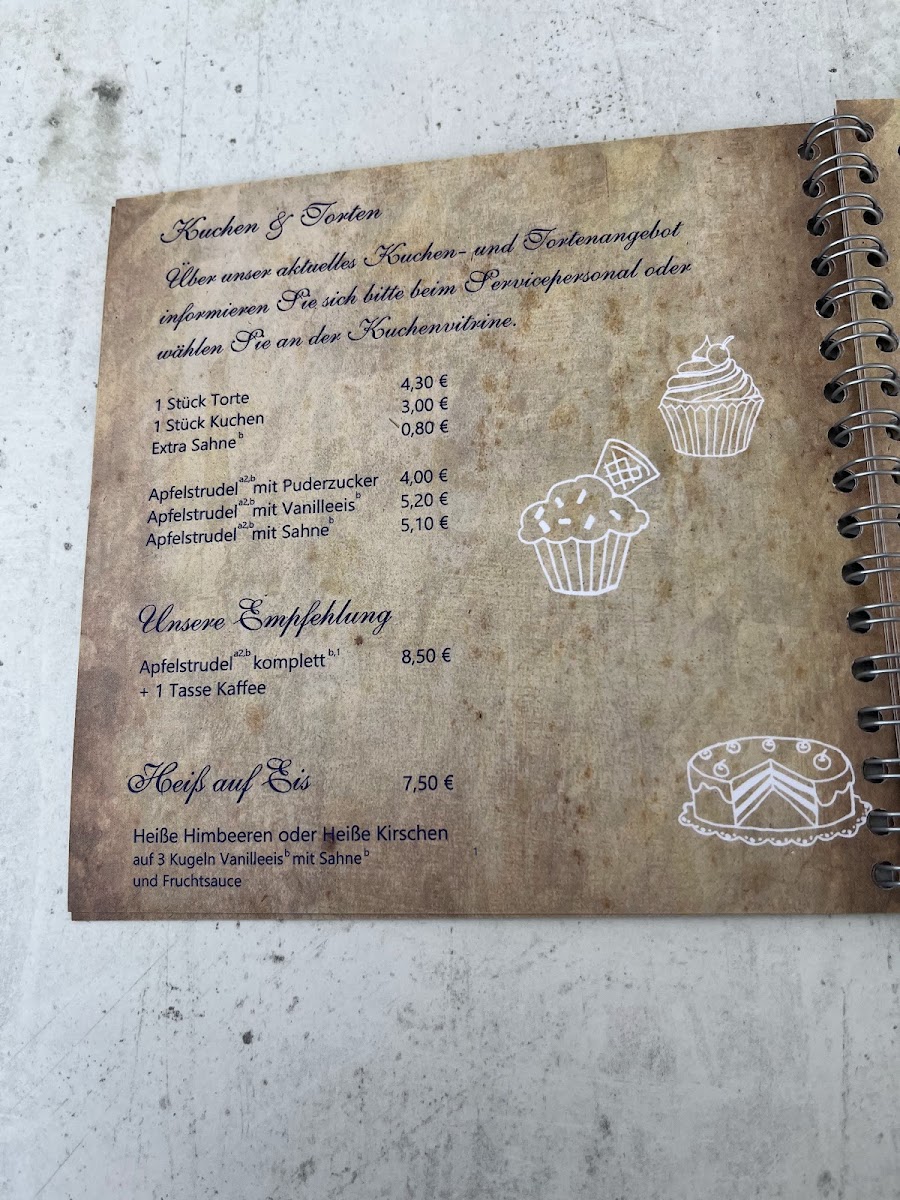 Kuchen & Torten
Über unser aktuelles Kuchen- und Tortenangebot
informieren Sie sich bitte beim Servicepersonal oder
wählen Sie an der Kuchenvitrine.
1 Stück Torte 4,30 €
1 Stück Kuchen 3,00 €
Extra Sahne b 0,80 €
Apfelstrudel a2,b mit Puderzucker 4,00 €
Apfelstrudel a2,b mit Vanilleeis b 5,20 €
Apfelstrudel a2,b mit Sahne b 5,10 €
Unsere Empfehlung
Apfelstrudel a2,b komplett b,1 8,50 €
+ 1 Tasse Kaffee
Heiß auf Eis 7,50 €
Heiße Himbeeren oder Heiße Kirschen
auf 3 Kugeln Vanilleeis b mit Sahne b 1
und Fruchtsauce